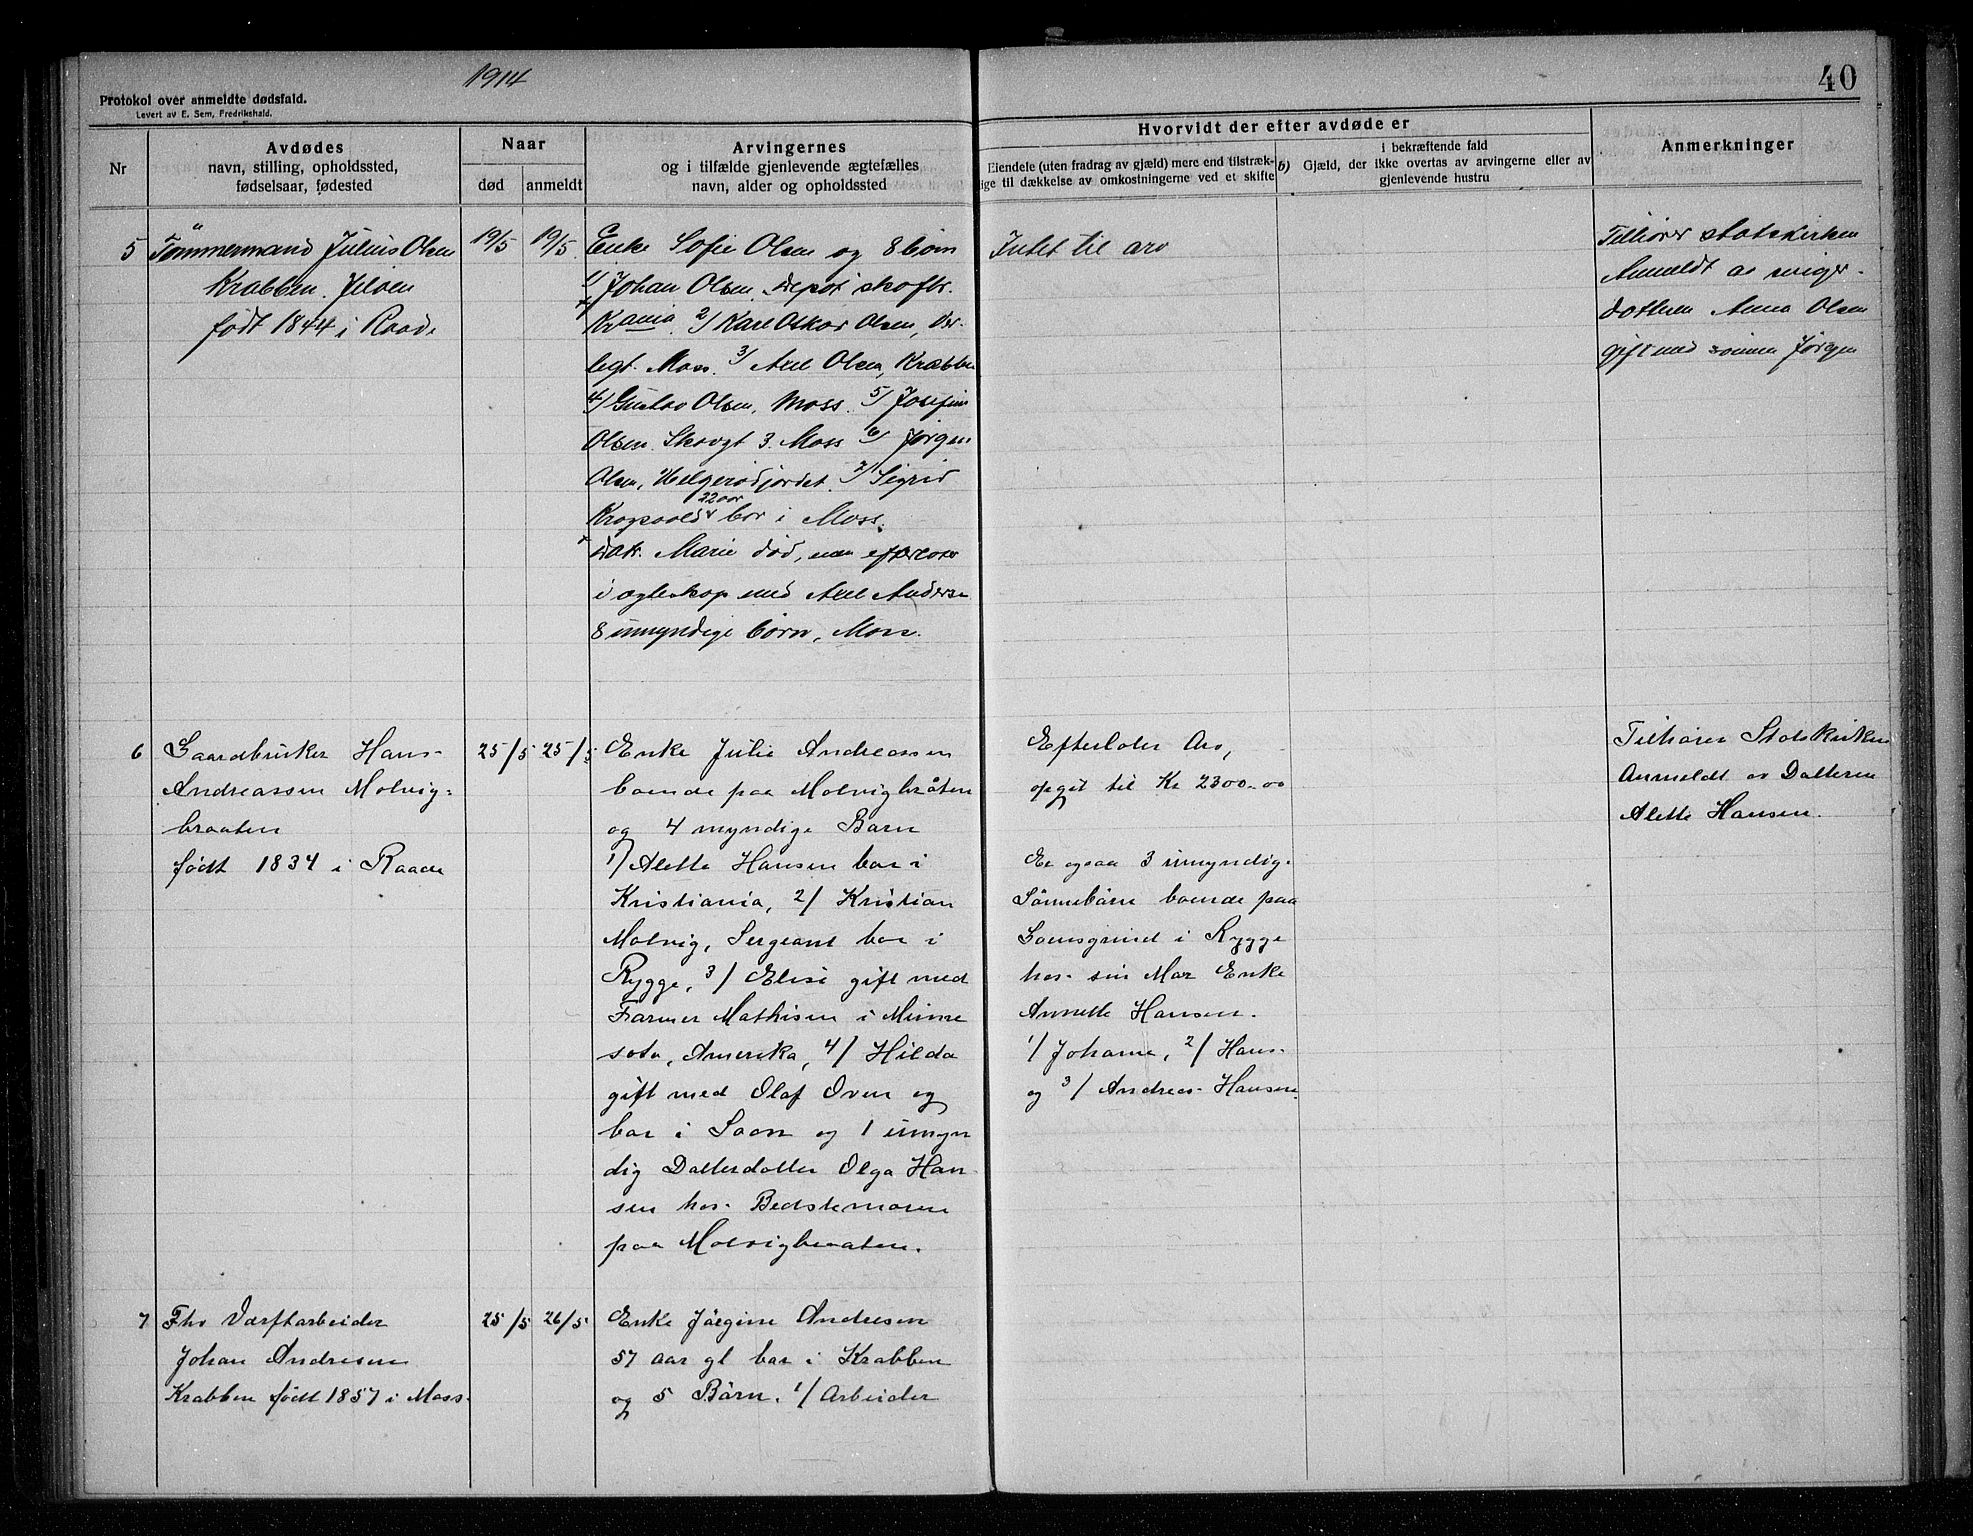 1914
40
Protokol over anmeldte dødsfald.
Levert av E. Sem, Fredrikshald.
Nr
Avdødes
navn, stilling, opholdssted,
fødselsaar, fødested
Naar
død
anmeldt
Arvingernes
og i tilfælde gjenlevende ægtefælles
navn, alder og opholdssted
Hvorvidt der efter avdøde er
Eiendele (uten fradrag av gjæld) mere end tilstræk-
ige til dækkelse av omkostningerne ved et skifte
b) Gjæld, der
i bekræftende fald
ikke overtas av arvingerne eller av
gjenlevende hustru
Anmerkninger
5
Tømmermand Julius Olsen
Krabben. Jeløen
født 1844 i Raade
19/5
19/5
Enke Sofie Olsen og 8 børn
1/ Johan Olsen,
Krania. 2/ Karl Oskar Olsen,
Moss. 3/ Axel Olsen, Krabben
4/ Gustav Olsen, Moss. 5/ Josefine
Olsen. Skovgt 3. Moss 6/ Jørgen
Olsen, Helgerødjordet. 7/ Sigrid
22 aar
bor i Moss.
datr. Marie død,
i ægteskap med Axel Anderse
8 umyndige børn, Moss.
Intet til arv
Tilhører statskirken
Anmeldt av sviger-
datteren Anna Olsen
gift med sønnen Jørgen
6
Gaardbruker Hans
Andreassen Molvig-
braaten
født 1834 i Raade
25/5
25/5
Enke Julie Andreassen
boende paa Molvigbråten
og 4 myndige Barn
1/ Alette Hansen bor i
Kristiania, 2/ Kristian
Molvig, Sergeant bor i
Rygge, 3/ Elise gift med
Farmer Mathisen i Minne
sota, Amerika, 4/ Hilda
gift med Olaf Oven og
bor i Soon og 1 umyn
dig Datterdatter Olga Han
sen hos Bedstemoren
paa Molvigbraaten.
Efterlater Arv,
opgit til Kr 2300.00
Er ogsaa 3 umyndig-
Sønnebørn boende paa
i Rygge
hos sin Mor Enke
Annette Hansen.
1/ Johanne, 2/ Hans
og 3/ Andreas Hansen.
Tilhører Statskirken
Anmeldt av Datteren
Alette Hansen.
7
Fhv Værftarbeider
Johan Andresen
Krabben født 1857 i Moss.
25/5
26/5
Enke Jørgine Andresen
57 aar gl bor i Krabben
og 5 Børn. 1/ Arbeider